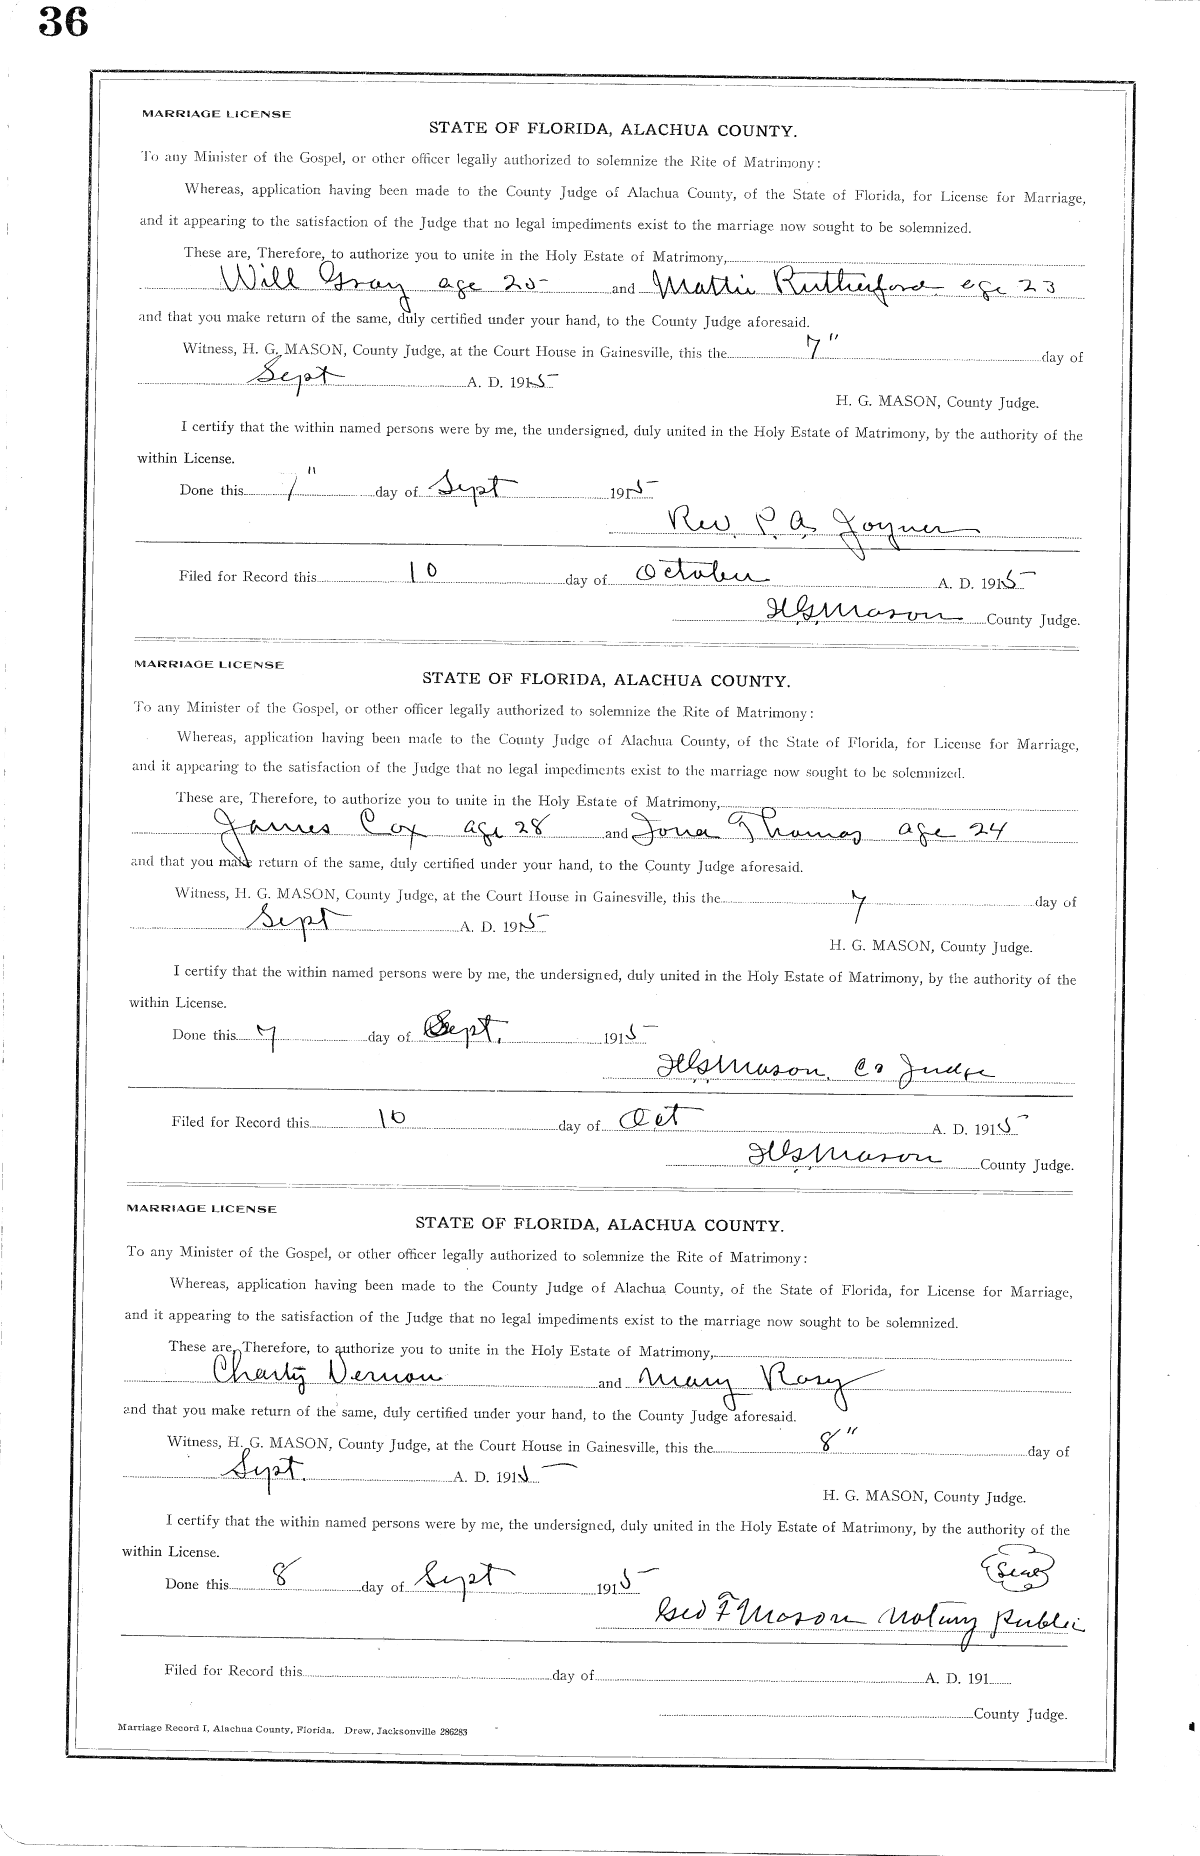 36
MARRIAGE LICENSE
STATE OF FLORIDA, ALACHUA COUNTY.
To any Minister of the Gospel, or other officer legally authorized to solemnize the Rite of Matrimony:
Whereas, application having been made to the County Judge of Alachua County, of the State of Florida, for License for Marriage,
and it appearing to the satisfaction of the Judge that no legal impediments exist to the marriage now sought to be solemnized.
These are, Therefore, to authorize you to unite in the Holy Estate of Matrimony,
Will Gray age 25 and Mattie Rutherford age 23
and that you make return of the same, duly certified under your hand, to the County Judge aforesaid.
Witness, H. G. MASON, County Judge, at the Court House in Gainesville, this the 7" day of
Sept A. D. 1915
H. G. MASON, County Judge.
I certify that the within named persons were by me, the undersigned, duly united in the Holy Estate of Matrimony, by the authority of the
within License.
Done this 7" day of Sept 1915
Rev. P. A. Joyner
Filed for Record this 10 day of October A. D. 1915
H.G. Mason County Judge.
MARRIAGE LICENSE
STATE OF FLORIDA, ALACHUA COUNTY.
To any Minister of the Gospel, or other officer legally authorized to solemnize the Rite of Matrimony:
Whereas, application having been made to the County Judge of Alachua County, of the State of Florida, for License for Marriage,
and it appearing to the satisfaction of the Judge that no legal impediments exist to the marriage now sought to be solemnized.
These are, Therefore, to authorize you to unite in the Holy Estate of Matrimony,
James Cox age 28 and Iona Thomas age 24
and that you make return of the same, duly certified under your hand, to the County Judge aforesaid.
Witness, H. G. MASON, County Judge, at the Court House in Gainesville, this the 7 day of
Sept A. D. 1915
H. G. MASON, County Judge.
I certify that the within named persons were by me, the undersigned, duly united in the Holy Estate of Matrimony, by the authority of the
within License.
Done this 7 day of Sept. 1915
H.G. Mason, Co Judge
Filed for Record this 10 day of Oct A. D. 1915
H.G. Mason County Judge.
MARRIAGE LICENSE
STATE OF FLORIDA, ALACHUA COUNTY.
To any Minister of the Gospel, or other officer legally authorized to solemnize the Rite of Matrimony:
Whereas, application having been made to the County Judge of Alachua County, of the State of Florida, for License for Marriage,
and it appearing to the satisfaction of the Judge that no legal impediments exist to the marriage now sought to be solemnized.
These are, Therefore, to authorize you to unite in the Holy Estate of Matrimony,
Charty Vernon and Mary Rosy
and that you make return of the same, duly certified under your hand, to the County Judge aforesaid.
Witness, H. G. MASON, County Judge, at the Court House in Gainesville, this the 8" day of
Sept. A. D. 1915
H. G. MASON, County Judge.
I certify that the within named persons were by me, the undersigned, duly united in the Holy Estate of Matrimony, by the authority of the
within License.
Seal
Done this 8 day of Sept 1915
Geo F Mason Notary Public
Filed for Record this day of A. D. 191
County Judge.
Marriage Record I, Alachua County, Florida. Drew, Jacksonville 286283